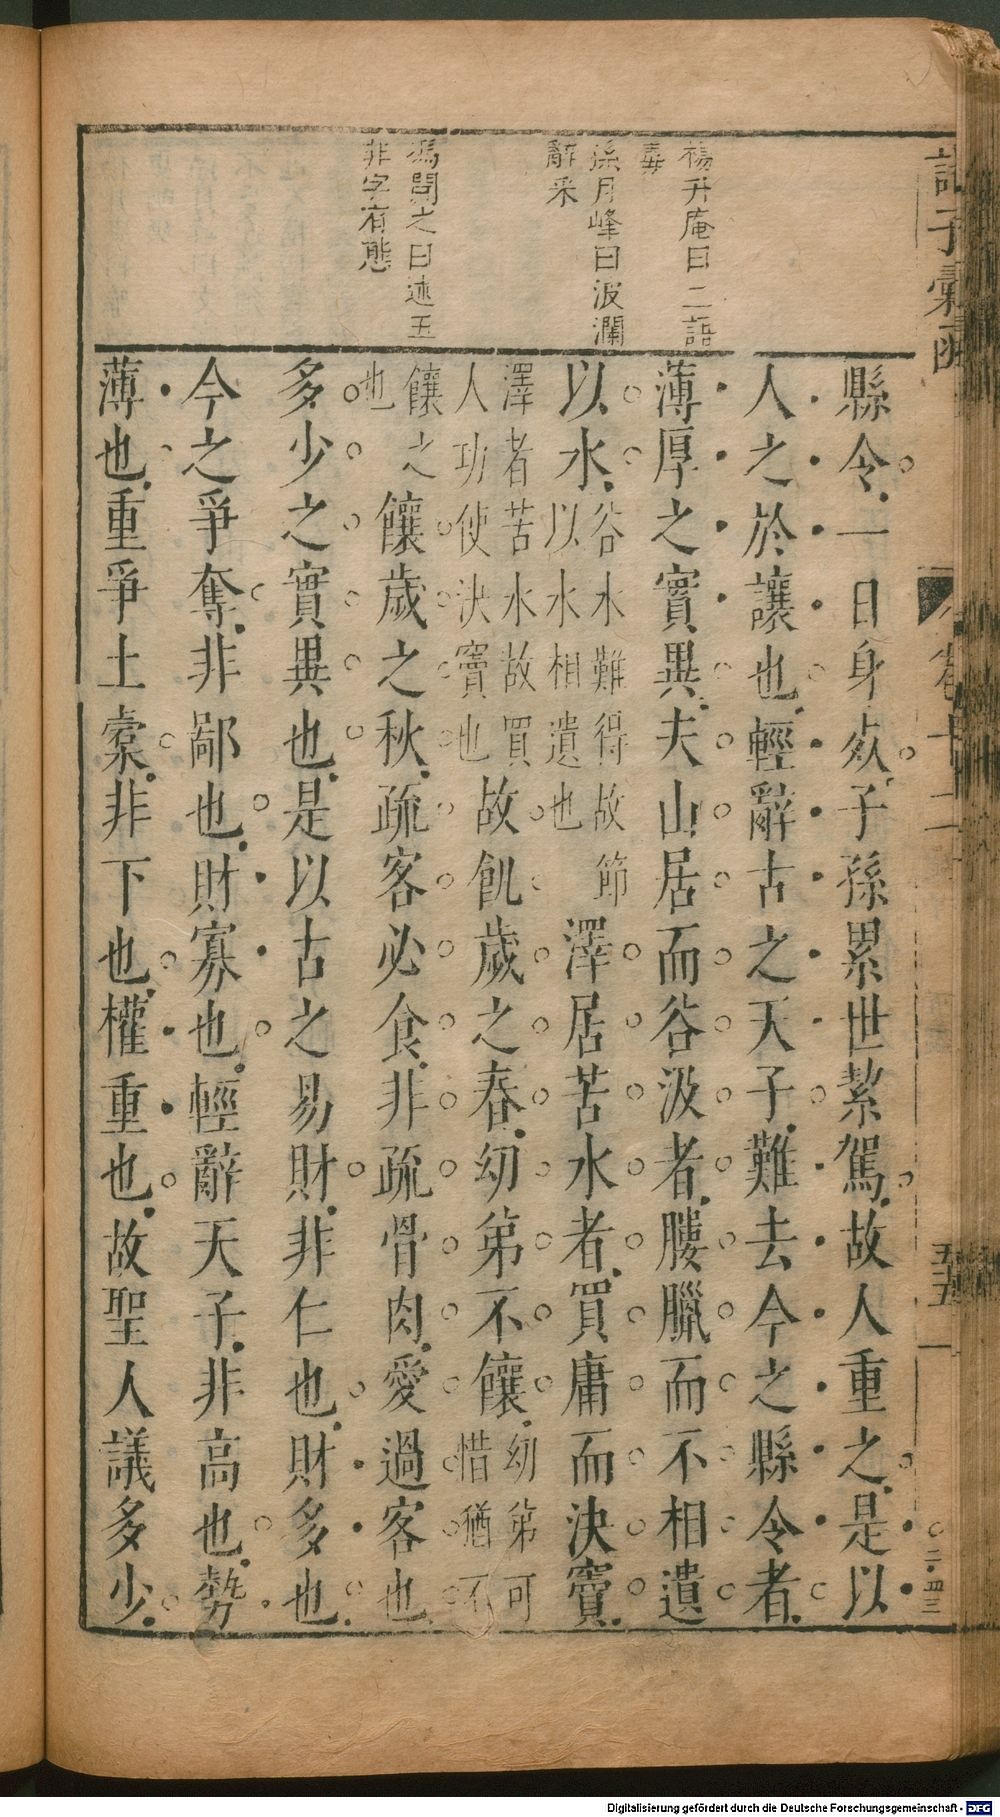 諸子彙函
卷十二
五五一
二・四三
楊升庵曰二語
毒
孫月峰曰波瀾
辭采
馮開之曰連五
非字有態
縣令一日身死子孫累世絜駕故人重之是以
人之於讓也輕辭古之天子難去今之縣令者
薄厚之實異夫山居而谷汲者膢臘而不相遺
以水谷水難得故節以水相遺也澤居苦水者買庸而決竇
澤者苦水故買人功使決竇也故飢歲之春幼弟不饟幼弟可惜猶不
饟之也饟歲之秋疏客必食非疏骨肉愛過客也
多少之實異也是以古之易財非仁也財多也
今之爭奪非鄙也財寡也輕辭天子非高也勢
薄也重爭土橐非下也權重也故聖人議多少
Digitalisierung gefördert durch die Deutsche Forschungsgemeinschaft - DFG